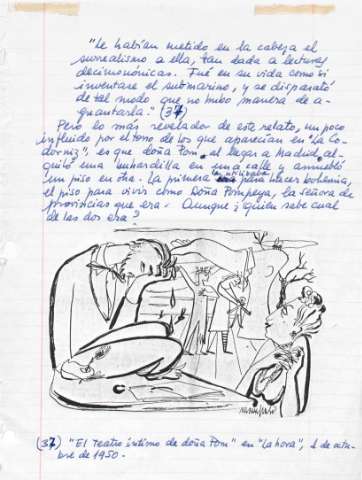 "Le habían metido en la cabeza el
surrealismo a ella, tan dada a lecturas
decimonónicas. Fué en su vida como si
inventase el submarino, y se disparató
de tal modo que no hubo manera de a-
guantarla." (37)
Pero lo más revelador de este relato, un poco
influido por el tono de los que aparecían en "La Co-
dorniz", es que doña Pom, al llegar a Madrid, al-
quiló una buhardilla en una calle y amuebló
un piso en otra. La primera la utilizaba para hacer bohemia,
el piso para vivir como Doña Pompeya, la señora de
provincias que era. Aunque ¿quien sabe cual
de las dos era?
(37) "El teatro íntimo de doña Pom" en "La hora", 1 de octu-
bre de 1950.-